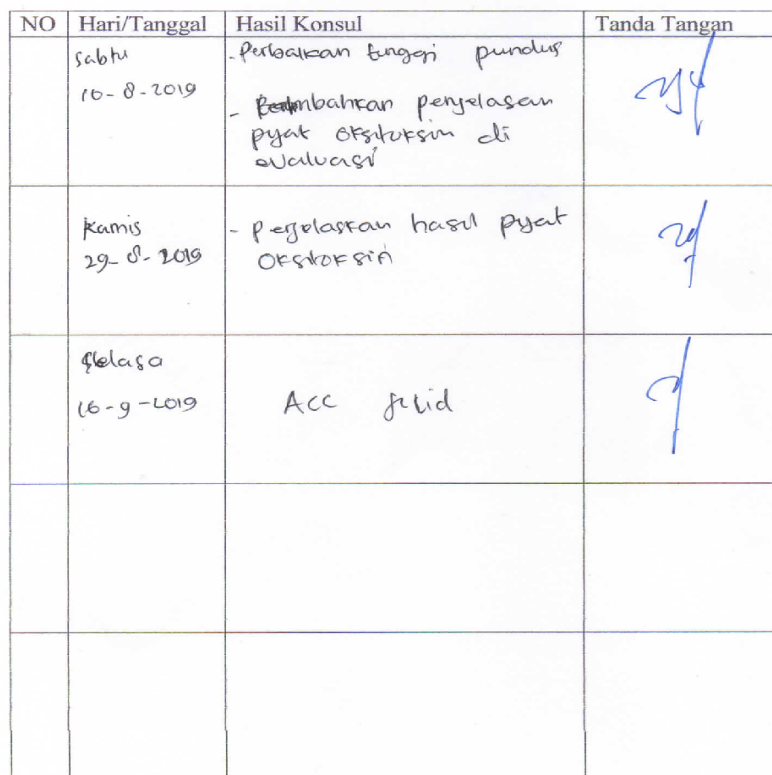 NO Hari/Tanggal Hasil Konsul Tanda Tangan
Sabtu
10-8-2019
- Perbaikan tinggi pundus
- tambahkan penjelasan
pijat oksitoksin di
evaluasi
Kamis
29-8-2019
- penjelaskan hasil pijat
oksitoksin
Selasa
16-9-2019
ACC